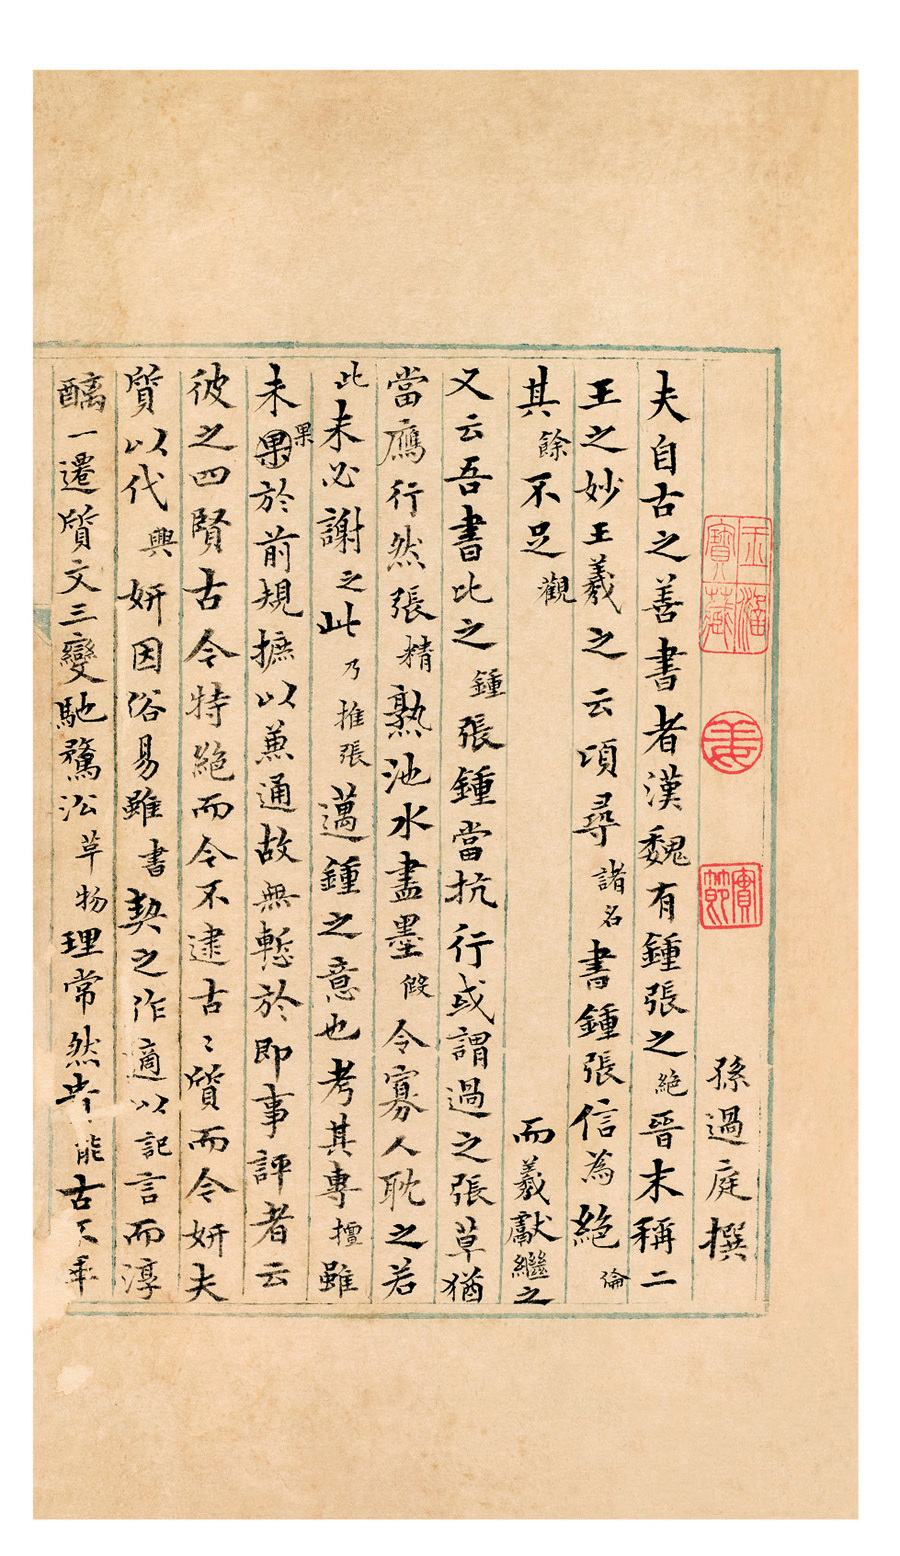 孫過庭撰
夫自古之善書者漢魏有鍾張之絕晉末稱二
王之妙王羲之云頃尋諸名書鍾張信為絕倫
其餘不足觀 而羲獻繼之
又云吾書比之鍾張鍾當抗行或謂過之張草猶
當鴈行然張精熟池水盡墨假令寡人耽之若
此未必謝之此乃推張邁鍾之意也考其專擅雖
未果果於前規摭以兼通故無慙於即事評者云
彼之四賢古今特絕而今不逮古〻質而今妍夫
質以代興妍因俗易雖書契之作適以記言而淳
醨一遷質文三變馳騖沿革物理常然貴能古不乖